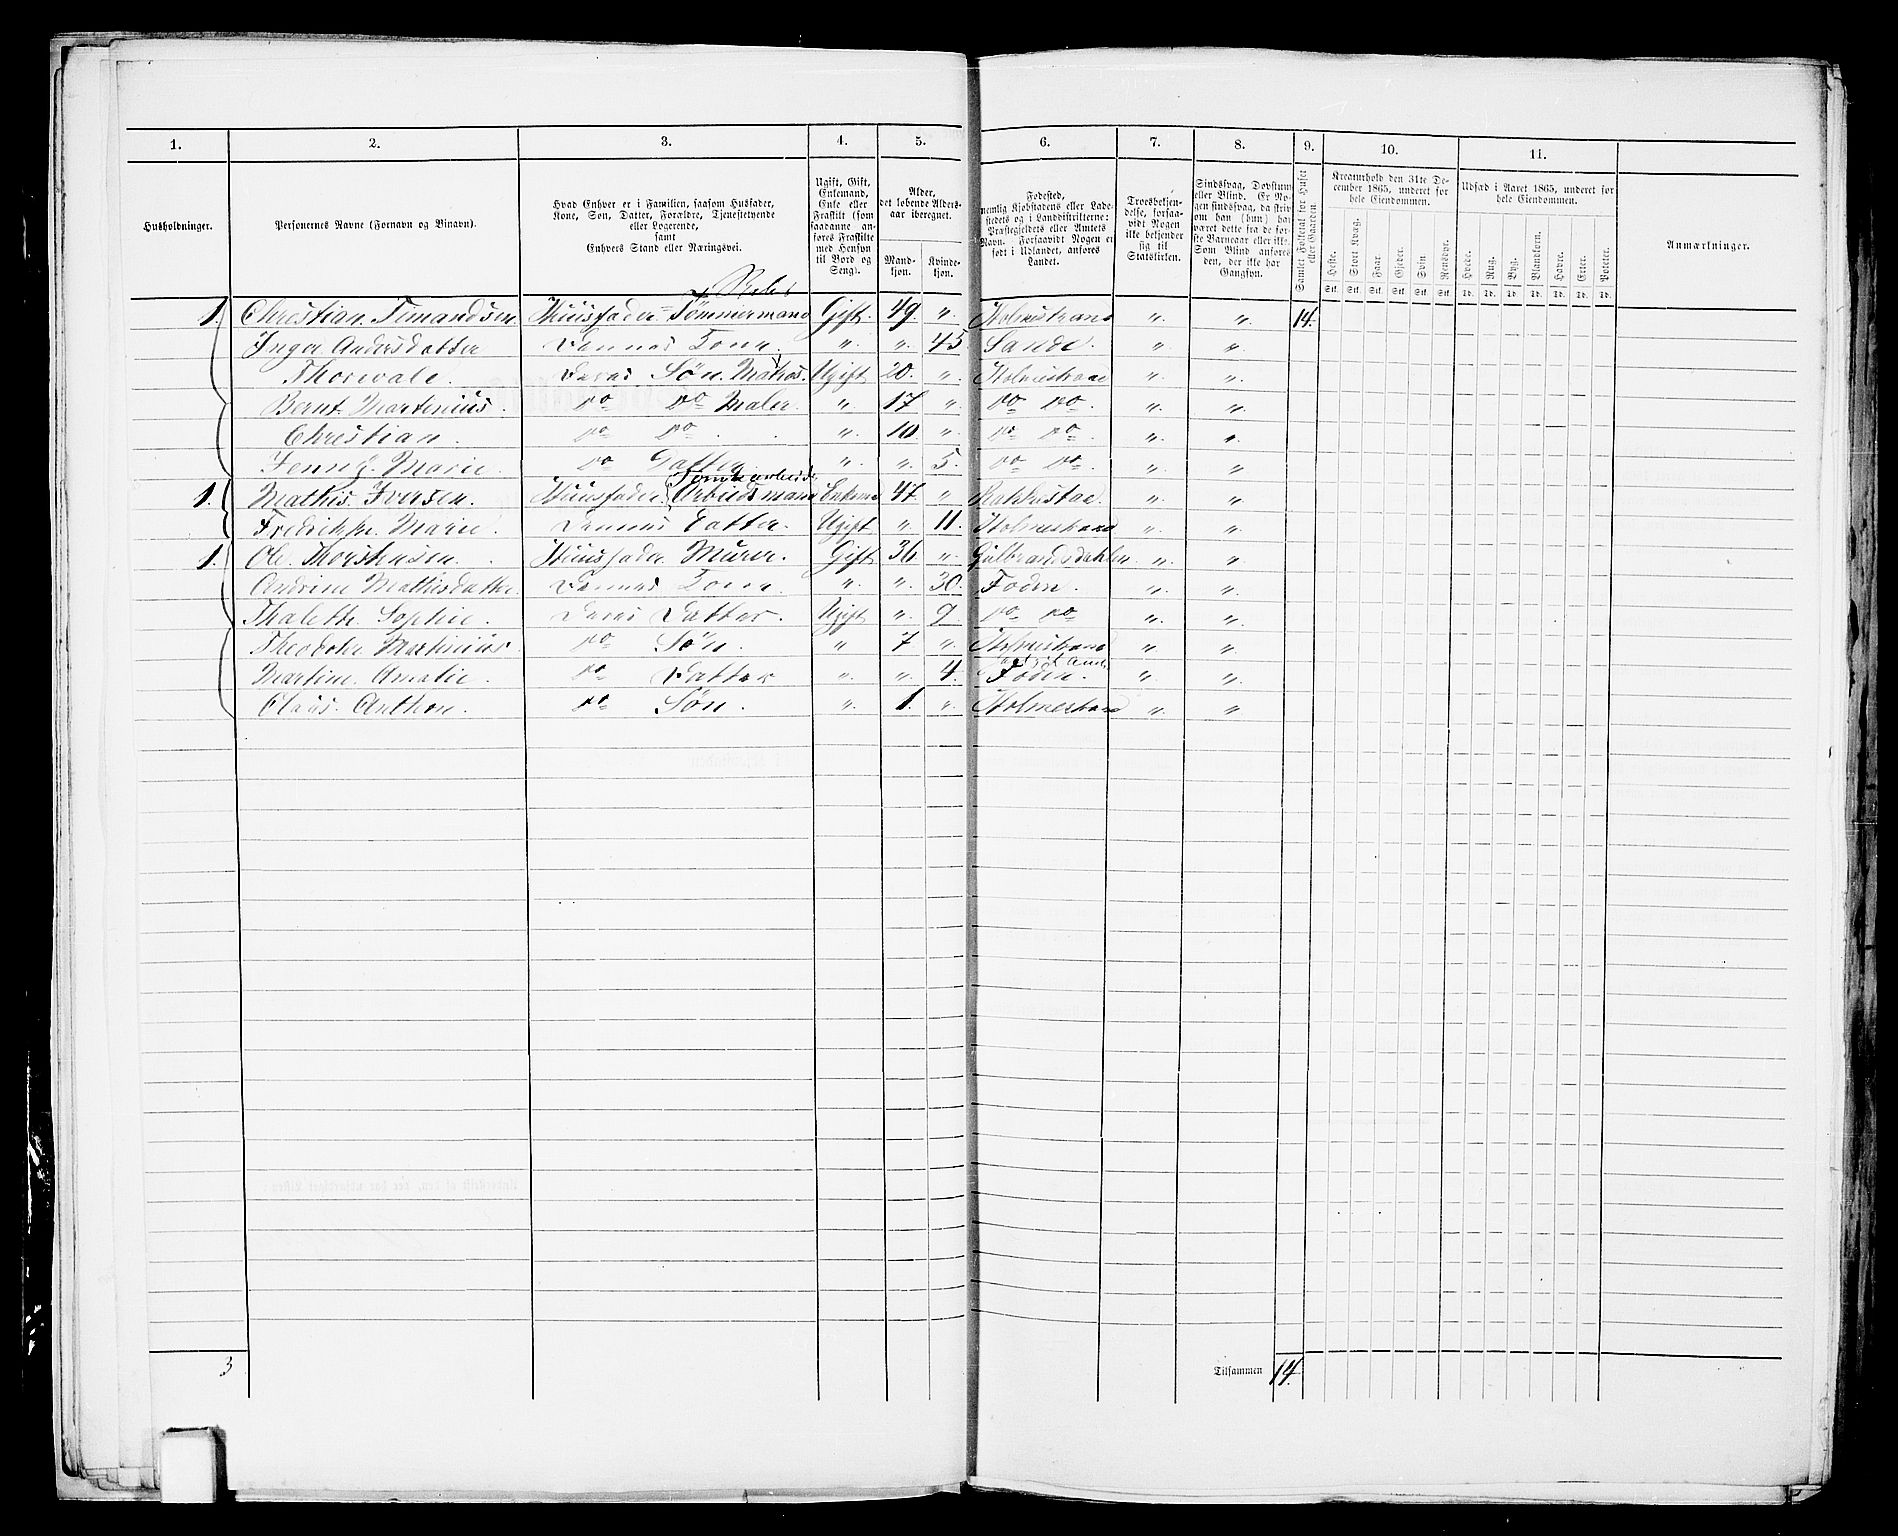 1. 2. 3. 4. 5. 6. 7. 8. 9. 10. 11.
Husholdninger.
Personernes Navne (Fornavn og Binavn).
Hvad Enhver er i Familien, saasom Husfader,
Kone, Søn, Datter, Forældre, Tjenestetyende
eller Logerende,
samt
Enhvers Stand eller Næringsvei.
Ugift, Gift,
Enkemand,
Enke eller
Fraskilt (som
saadanne an-
føres Fraskilte
med Hensyn
til Bord og
Seng).
Alder,
det løbende Alders-
aar iberegnet.
Mand-
kjøn.
Kvinde-
kjøn.
Fødested,
nemlig Kjøbstadens eller Lade-
stedets og i Landdistrikterne:
Præstegjeldets eller Amtets
Navn. Forsaavidt Nogen er
født i Udlandet, anføres
Landet.
Troesbekjen-
delse, forsaa-
vidt Nogen
ikke bekjender
sig til
Statskirken.
Sindssvag, Døvstum
eller Blind. Er No-
gen sindssvag, da skriv
om han (hun) har
været dette fra de før-
ste Barneaar eller ikke.
Som Blind anføres
den, der ikke har
Gangsyn.
Samlet Folketal for Huset
eller Gaarden.
Kreaturhold den 31te De-
cember 1865, underet for
hele Eiendommen.
Heste. Stort Kvæg. Faar. Gjeder. Svin. Rensdyr.
Stk. Stk. Stk. Stk. Stk. Stk.
Udsæd i Aaret 1865, underet for
hele Eiendommen.
Hvede. Rug. Byg. Blandkorn. Havre. Erter. Poteter.
Td. Td. Td. Td. Td. Td. Td.
Anmærkninger.
1. Christian Timandsen Huusfader Tømmermand Gift. 49 " Holmestrand " " 14.
Inger Andersdatter Dennes Kone " " 45 Sande. " "
Thorvald. Deres Søn. Matros. Ugift 20. " Holmestrand " "
Bernt Martinius. Do Do Maler. " 17 " Do Do. " "
Christian. Do Do. " 10 " Do Do. " "
Jennÿ. Marie. Do Datter. " " 5. Do Do. " "
1. Mathis Iversen. Huusfader. Arbeidsmand Enkemd 47 " Rakkestad " "
Fredrikke Marie. Dennes Datter. Ugift " 11. Holmestrand " "
1. Ole Thorstensen. Huusfader Murer. Gift 36 " Gulbrandsdahlen " "
Andrine Mathisdatter. Dennes Kone " " 30. Foden. " "
Thalette Sophie. Deres Datter. Ugift " 9. Do Do " "
Theodohr Martinius. Do Søn. " 7 " Holmestrand " "
Martine Amalie. Do Datter " " 4. Foden. " "
Claus Anthon. Do Søn. " 1. " Holmestrand " "
3
Tilsammen 14.